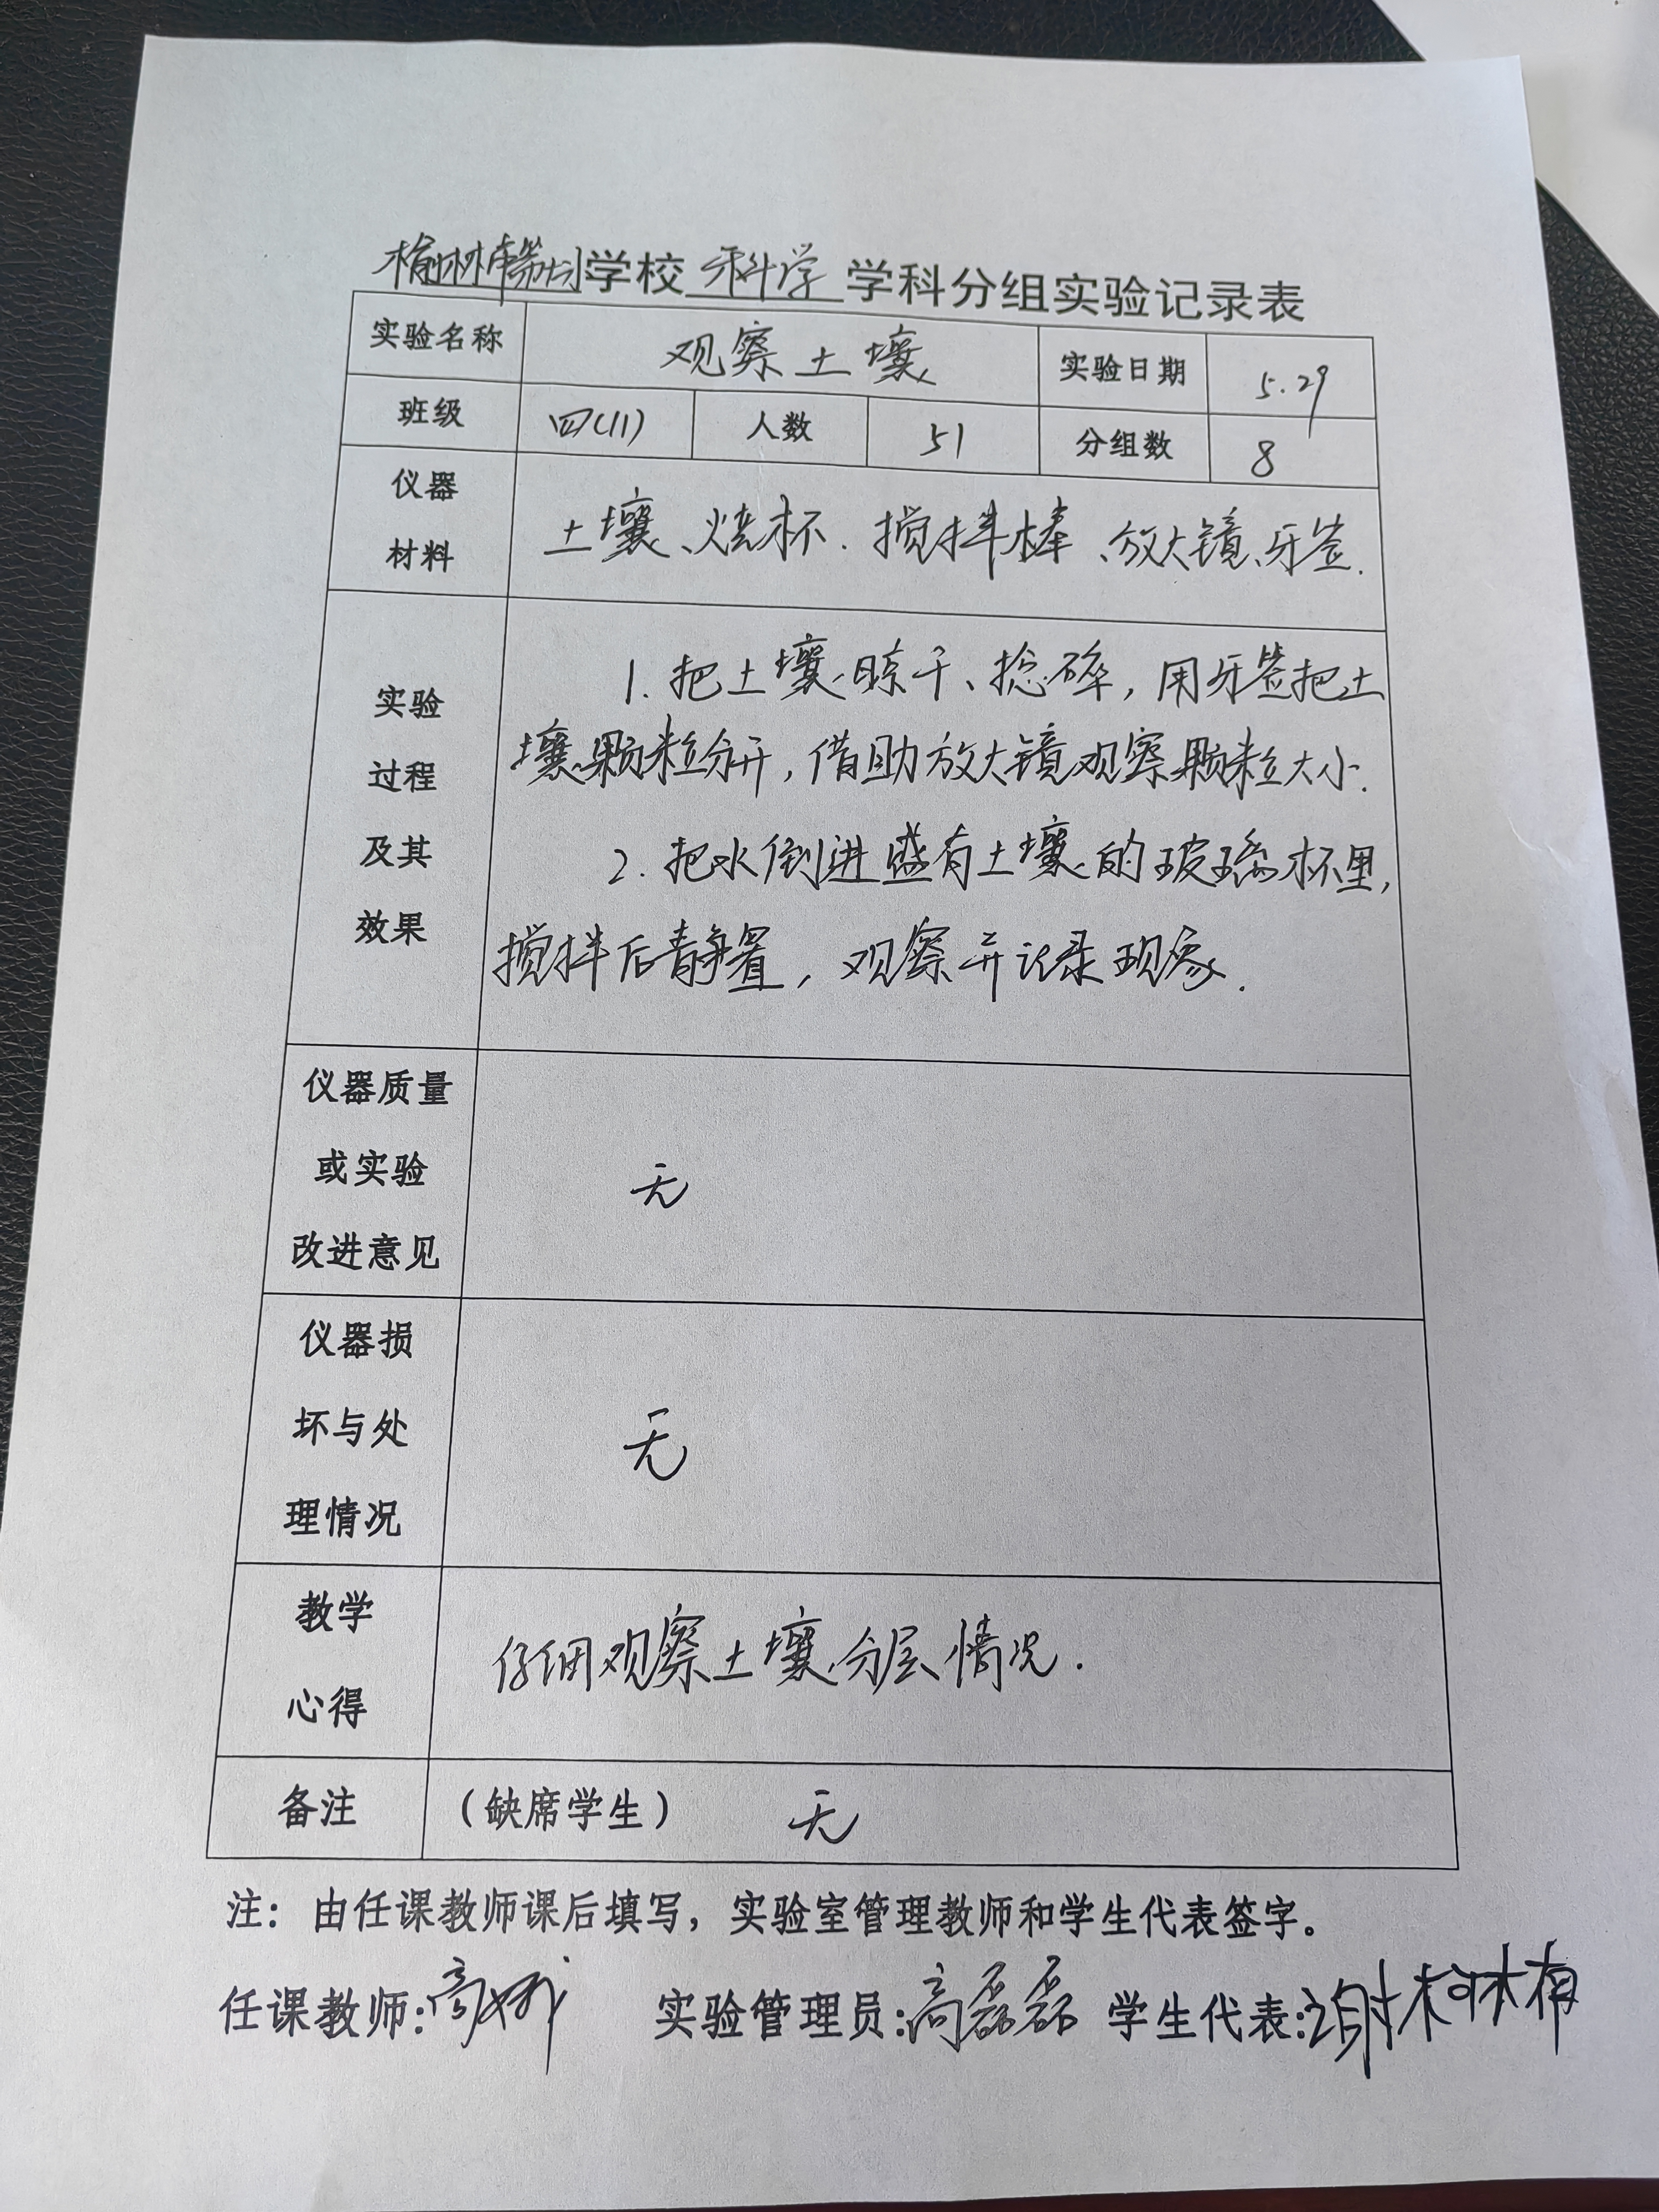 榆林市第 学校 科学 学科分组实验记录表
实验名称 观察土壤 实验日期 5.29
班级 四(11) 人数 51 分组数 8
仪器
材料
土壤、烧杯.搅拌棒、放大镜、牙签.
实验
过程
及其
效果
1.把土壤晾干、捻碎,用牙签把土
壤颗粒分开,借助放大镜观察颗粒大小.
2.把水倒进盛有土壤的玻璃杯里,
搅拌后静置,观察并记录现象.
仪器质量
或实验
改进意见
无
仪器损
坏与处
理情况
无
教学
心得
仔细观察土壤分层情况.
备注 (缺席学生) 无
注:由任课教师课后填写,实验室管理教师和学生代表签字。
任课教师:高 实验管理员:高磊磊 学生代表:谢